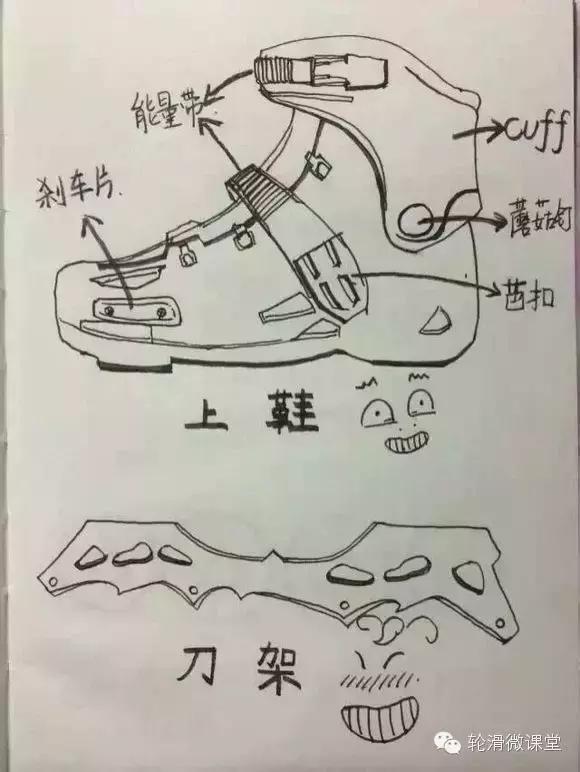 能量带
cuff
刹车片.
蘑菇钉
芭扣
上鞋
刀架
轮滑微课堂